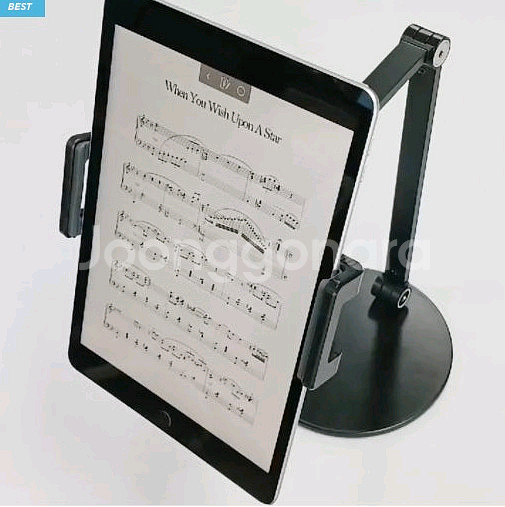 BEST
When You Wish Upon A Star
Joonggonara